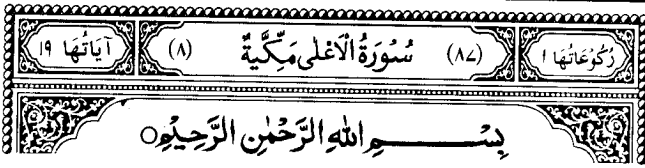 رُكُوْعَاتُهَا ۱ (۸۷) سُوْرَةُ الْاَعْلٰى مَكِّيَّةٌ (۸) اٰيَاتُهَا ۱۹
بِسْمِ اللّٰهِ الرَّحْمٰنِ الرَّحِيْمِ○